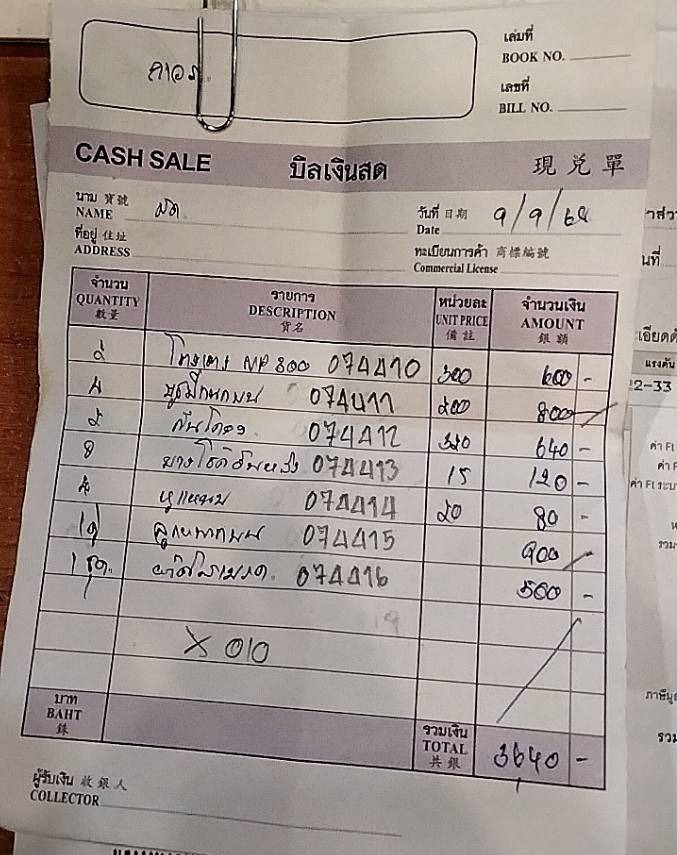 ถาวร
เล่มที่
BOOK NO.
เลขที่
BILL NO.
CASH SALE บิลเงินสด 現兌單
นาม 寶號
NAME สด
วันที่ 日期
Date 9/9/68
ที่อยู่ 住址
ADDRESS
ทะเบียนการค้า 商標編號
Commercial License
จำนวน รายการ หน่วยละ จำนวนเงิน
QUANTITY DESCRIPTION UNIT PRICE AMOUNT
數量 貨名 備註 銀額
2 NP 300 074410 300 600 -
4 ชุดปีกนกบน 074411 200 800 -
2 คันโดรง 074412 320 640 -
8 074413 15 120 -
4 หูแหนบ 074414 20 80 -
074415 900 -
074416 500 -
X 010
บาท รวมเงิน
BAHT TOTAL 3640 -
銖 共銀
ผู้รับเงิน 收銀人
COLLECTOR
แรงดัน
2-33
ค่า Ft
รวม